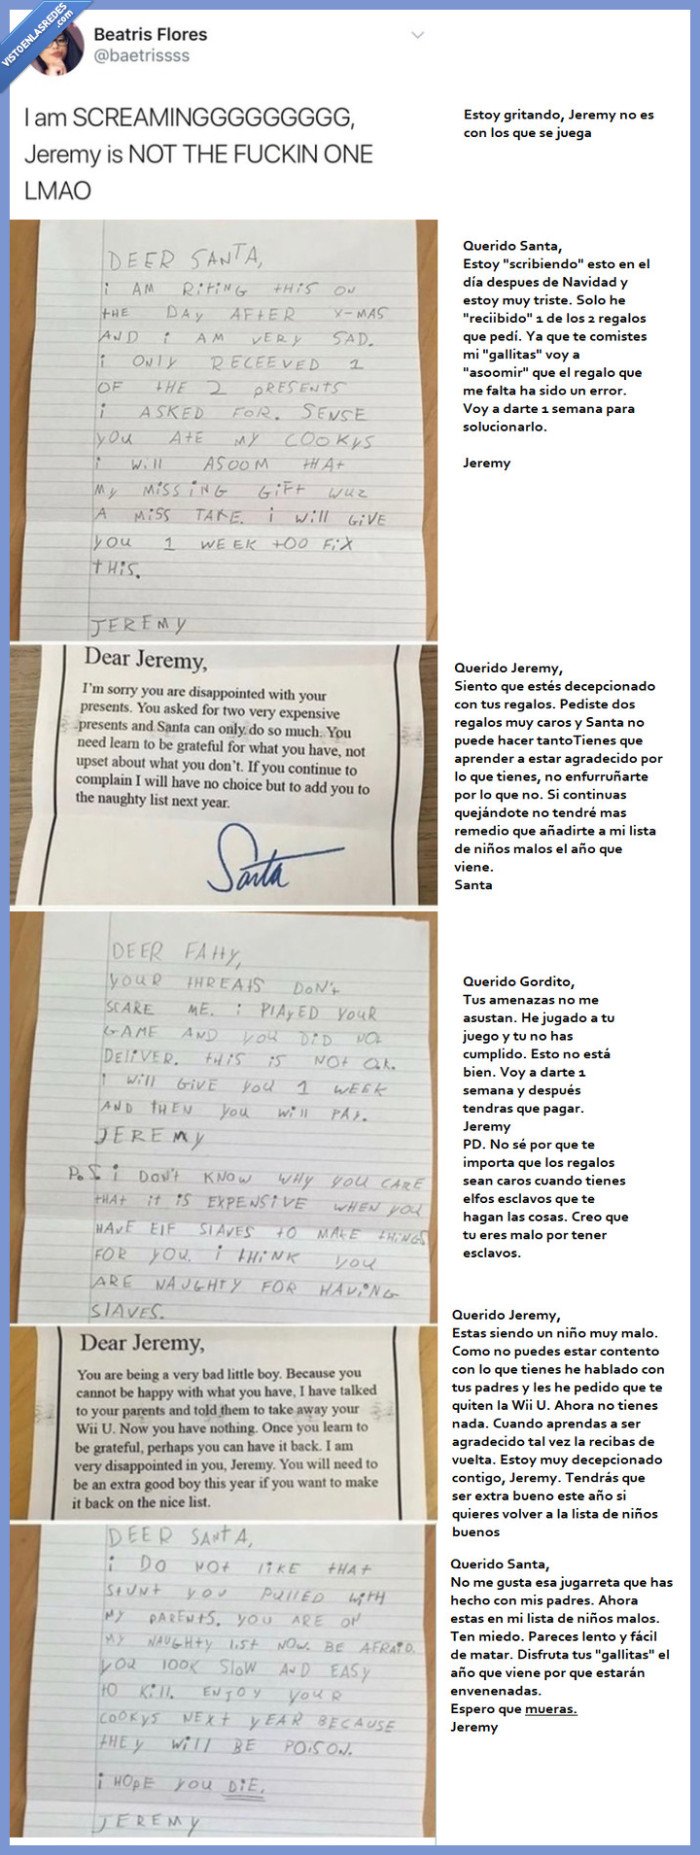 VISTOENLASREDES
.com
Beatris Flores
@baetrissss
I am SCREAMINGGGGGGGGG,
Jeremy is NOT THE FUCKIN ONE
LMAO
Estoy gritando, Jeremy no es
con los que se juega
DEER SANTA,
i AM RITING THIS ON
THE DAY AFTER X-MAS
AND i AM VERY SAD.
i ONLY RECEEVED 1
OF THE 2 PRESENTS
i ASKED FOR. SENSE
YOU ATE MY COOKYS
i WILL ASOOM THAT
MY MISSING GIFT WUZ
A MISS TAKE. i WILL GIVE
YOU 1 WEEK TOO FIX
THIS.
JEREMY
Querido Santa,
Estoy "scribiendo" esto en el
día despues de Navidad y
estoy muy triste. Solo he
"reciibido" 1 de los 2 regalos
que pedí. Ya que te comistes
mi "gallitas" voy a
"asoomir" que el regalo que
me falta ha sido un error.
Voy a darte 1 semana para
solucionarlo.
Jeremy
Dear Jeremy,
I'm sorry you are disappointed with your
presents. You asked for two very expensive
presents and Santa can only do so much. You
need learn to be grateful for what you have, not
upset about what you don't. If you continue to
complain I will have no choice but to add you to
the naughty list next year.
Santa
Querido Jeremy,
Siento que estés decepcionado
con tus regalos. Pediste dos
regalos muy caros y Santa no
puede hacer tantoTienes que
aprender a estar agradecido por
lo que tienes, no enfurruñarte
por lo que no. Si continuas
quejándote no tendré mas
remedio que añadirte a mi lista
de niños malos el año que
viene.
Santa
DEER FATTY,
YOUR THREATS DON't
SCARE ME. i PLAYED YOUR
GAME AND YOU DID NOT
DELIVER. THIS IS NOT OK.
i WILL GIVE YOU 1 WEEK
AND THEN YOU WILL PAY.
JEREMY
P.S i DON't KNOW WHY YOU CARE
THAT IT IS EXPENSIVE WHEN YOU
HAVE ELF SLAVES TO MAKE THINGS
FOR YOU. i THINK YOU
ARE NAUGHTY FOR HAVING
SLAVES.
Querido Gordito,
Tus amenazas no me
asustan. He jugado a tu
juego y tu no has
cumplido. Esto no está
bien. Voy a darte 1
semana y después
tendras que pagar.
Jeremy
PD. No sé por que te
importa que los regalos
sean caros cuando tienes
elfos esclavos que te
hagan las cosas. Creo que
tu eres malo por tener
esclavos.
Dear Jeremy,
You are being a very bad little boy. Because you
cannot be happy with what you have, I have talked
to your parents and told them to take away your
Wii U. Now you have nothing. Once you learn to
be grateful, perhaps you can have it back. I am
very disappointed in you, Jeremy. You will need to
be an extra good boy this year if you want to make
it back on the nice list.
Querido Jeremy,
Estas siendo un niño muy malo.
Como no puedes estar contento
con lo que tienes he hablado con
tus padres y les he pedido que te
quiten la Wii U. Ahora no tienes
nada. Cuando aprendas a ser
agradecido tal vez la recibas de
vuelta. Estoy muy decepcionado
contigo, Jeremy. Tendrás que
ser extra bueno este año si
quieres volver a la lista de niños
buenos
DEER SANTA,
i DO NOT LIKE THAT
STUNT YOU PULLED WITH
MY PARENTS. YOU ARE ON
MY NAUGHTY LIST NOW. BE AFRAID.
YOU LOOK SLOW AND EASY
TO KILL. ENJOY YOUR
COOKYS NEXT YEAR BECAUSE
THEY WILL BE POISON.
i HOPE YOU DIE.
JEREMY
Querido Santa,
No me gusta esa jugarreta que has
hecho con mis padres. Ahora
estas en mi lista de niños malos.
Ten miedo. Pareces lento y fácil
de matar. Disfruta tus "gallitas" el
año que viene por que estarán
envenenadas.
Espero que mueras.
Jeremy